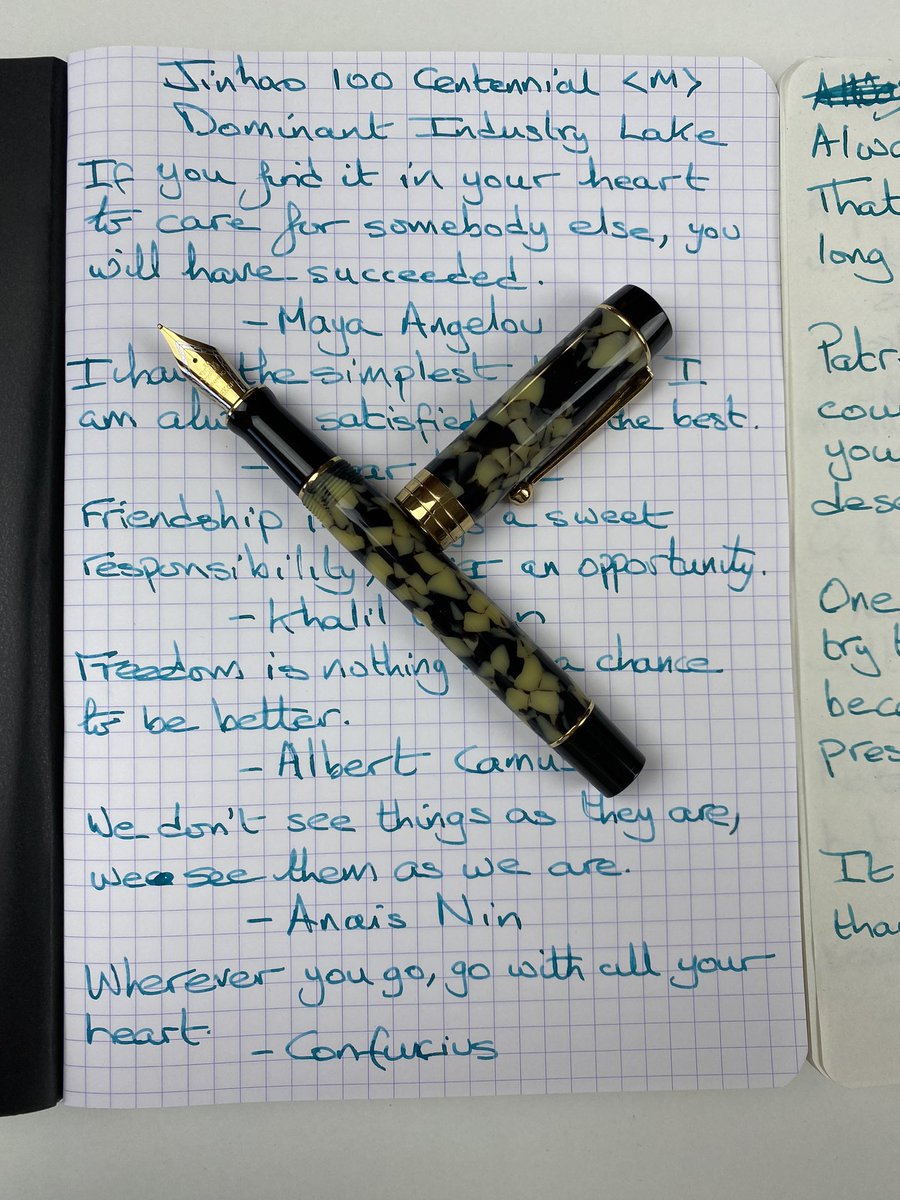 Jinhao 100 Centennial <M>
Dominant Industry Lake
If you find it in your heart
to care for somebody else, you
will have succeeded.
- Maya Angelou
I the simplest I
am satisfied the best.
-
Friendship a sweet
responsibility, an opportunity.
- Khalil
Freedom is nothing a chance
to be better.
- Albert Camus
We don't see things as they are,
we see them as we are.
- Anais Nin
Wherever you go, go with all your
heart.
- Confucius
That
long
One
try
It